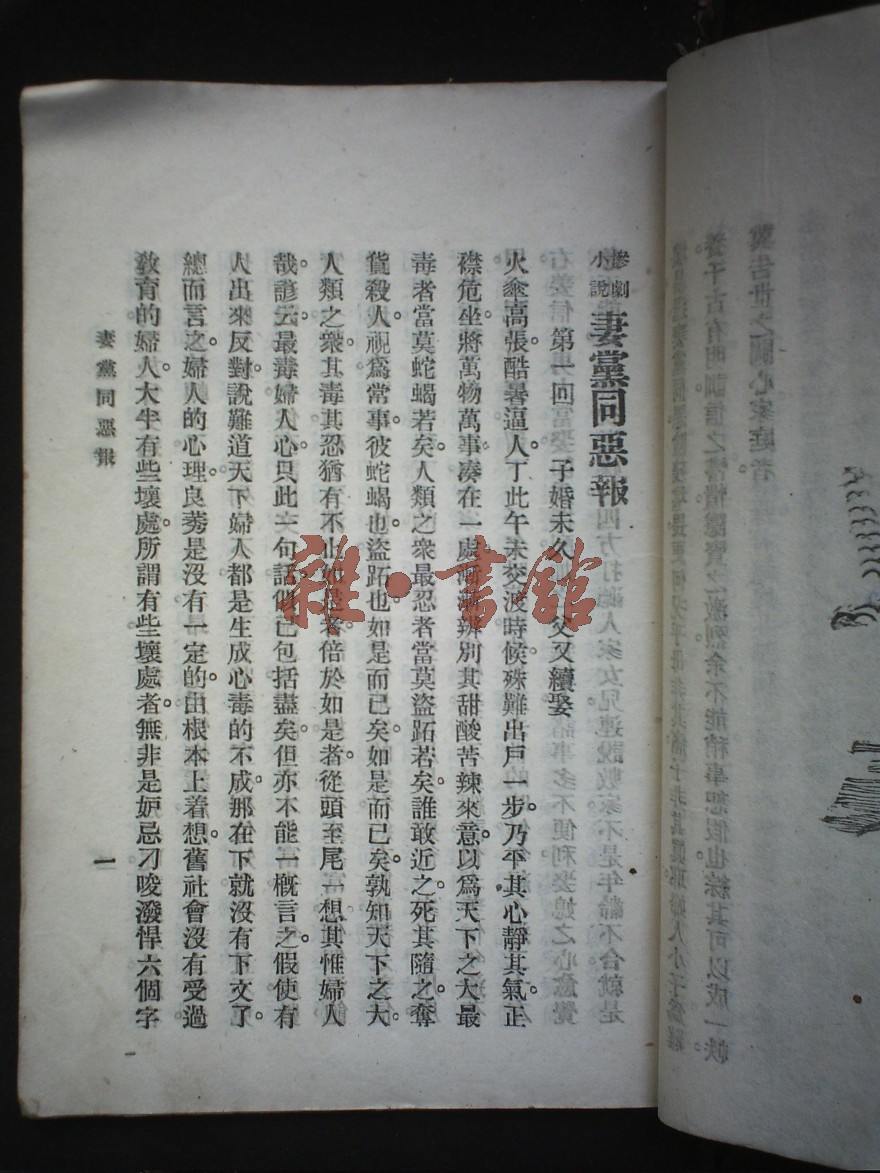 慘劇小說 妻黨同惡報
第一回 子婚未久 父又續娶
火傘高張酷暑逼人丁此午未交淩時候殊難出戶一步。乃平其心靜其氣正
襟危坐將萬物萬事湊在一處漸漸辨別其甜酸苦辣來意以爲天下之大最
毒者當莫蛇蝎若矣。人類之衆最忍者當莫盜跖若矣。誰敢近之。死其隨之。奪
貨殺人。視爲常事。彼蛇蝎也。盜跖也。如是而已矣。如是而已矣。孰知天下之大。
人類之衆。其毒其忍猶有不止如是者。倍於如是者。從頭至尾一想。其惟婦人
哉。諺云。最毒婦人心。只此一句話似已包括盡矣。但亦不能一概言之。假使有
人出來反對說難道天下婦人都是生成心毒的不成。那在下就沒有下文了。
總而言之。婦人的心理良莠是沒有一定的。由根本上着想。舊社會沒有受過
教育的婦人。大半有些壞處。所謂有些壞處者。無非是妒忌刁唆潑悍六個字
妻黨同惡報
一
雜·書館